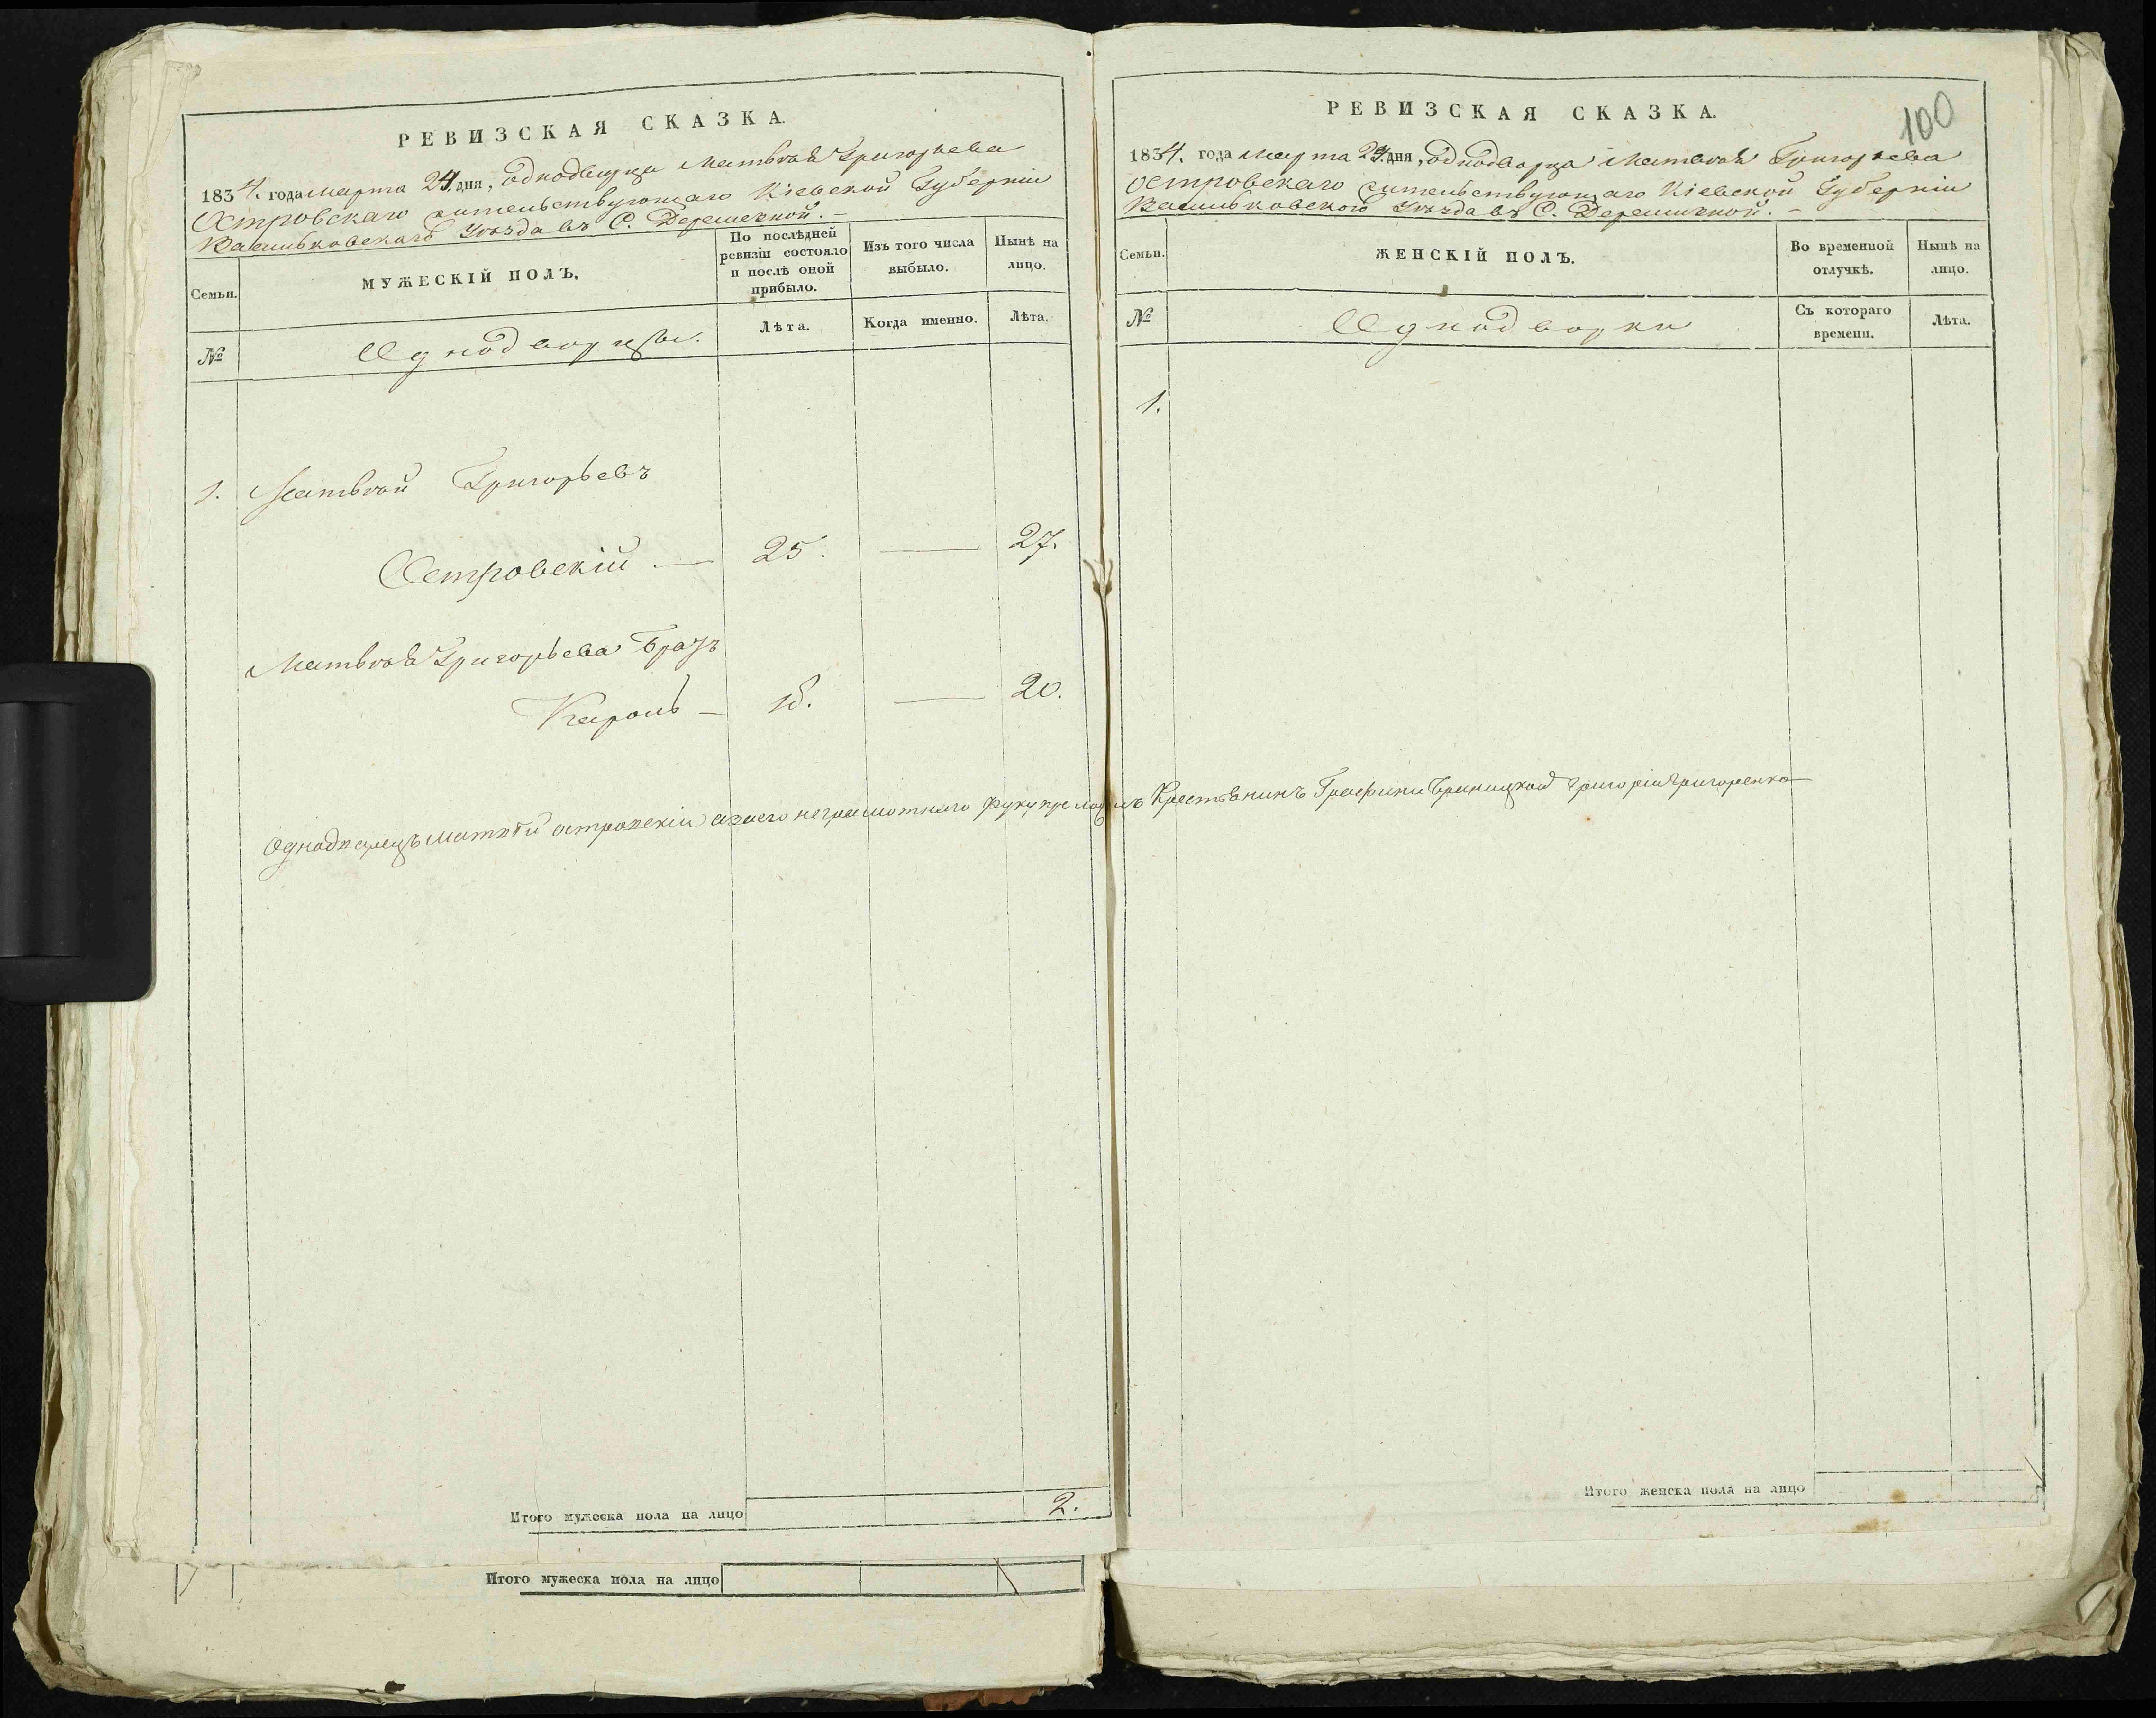 РЕВИЗСКАЯ СКАЗКА.
1834. года Марта 24. дня, однодворца Матвѣя Григорьева
Островскаго жительствующаго Кіевской Губерніи
Васильковскаго Уѣзда въ С.
Семьи.
МУЖЕСКІЙ ПОЛЪ.
По послѣдней
ревизіи состояло
и послѣ оной
прибыло.
Изъ того числа
выбыло.
Нынѣ на
лицо.
№
Однодворцы.
Лѣта.
Когда именно.
Лѣта.
1. Матвѣй Григорьевъ
Островскій — 25. — 27.
Матвѣя Григорьева братъ
Кароль — 18. — 20.
Итого мужеска пола на лицо 2.
Итого мужеска пола на лицо
100
РЕВИЗСКАЯ СКАЗКА.
1834. года Марта 24. дня, однодворца Матвѣя Григорьева
Островскаго жительствующаго Кіевской Губерніи
Васильковскаго Уѣзда въ С.
Семьи.
ЖЕНСКІЙ ПОЛЪ.
Во временной
отлучкѣ.
Нынѣ на
лицо.
№
Однодворки
Съ котораго
времени.
Лѣта.
1.
Однодварецъ Матвѣй островскій азаего неграмотнаго Крестянинъ Графини Браницкой Григорій Григоренко
Итого женска пола на лицо